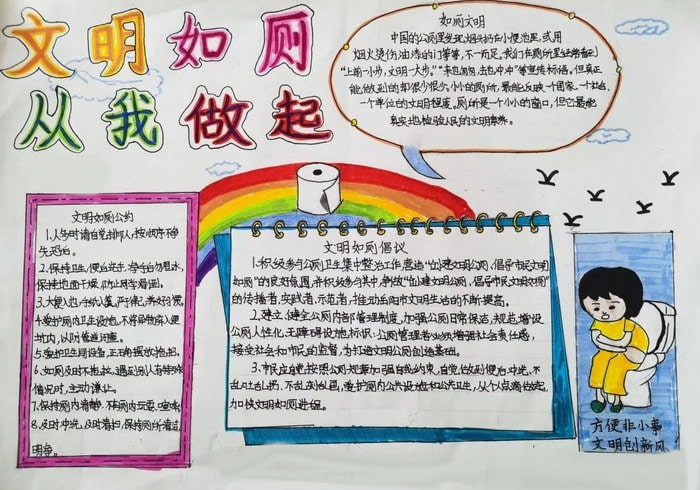 文明如厕
从我做起
如厕文明
中国的公厕里发现,烟头扔在小便池里,或用
烟火烫伤油漆的门等等,不一而足。我们在厕所里经常看到
"上前一小步,文明一大步。""来也匆匆,去也冲冲"等宣传标语。但真正
能做到的却很少很少。小小的厕所,最能反映一个国家、一个社会、
一个单位的文明程度。厕所是一个小小的窗口,但它最能
真实地检验人民的文明素养。
文明如厕公约
1.人多时请自觉排队,按顺序不争
先恐后。
2.保持卫生,便后洗手,
保持地面干燥,防止同学滑倒。
4.爱护厕内卫生设施,不将异物扔入便
坑内,以防管道
5.爱护卫生间设备,正确摆放拖把。
情况时,主动谦让。
7.保持厕内清静,不在厕内玩耍、喧哗
8.及时冲洗,及时清扫,保持厕所清洁
明亮。
文明如厕倡议
1.积极参与公厕卫生集中整治工作,营造"创建文明公厕,倡导市民文明
如厕"的良好氛围,并积极参与其中,争做"创建文明公厕,倡导市民文明如厕"
的传播者、实践者、示范者,推动岳阳市文明生活的不断提高。
2.建立、健全公厕内部管理制度,加强公厕日常保洁,规范增设
公厕人性化、无障碍设施、标识;公厕管理者必须增强社会责任感,
接受社会和市民的监督,为打造文明公厕创造基础。
3.市民应自觉按照公厕规章加强自我约束,自觉做到便后冲洗,不
乱吐乱扔、不乱刻乱画,爱护厕内公共设施和公共卫生,从个人点滴做起,
加快文明如厕进程。
方便非小事
文明创新风